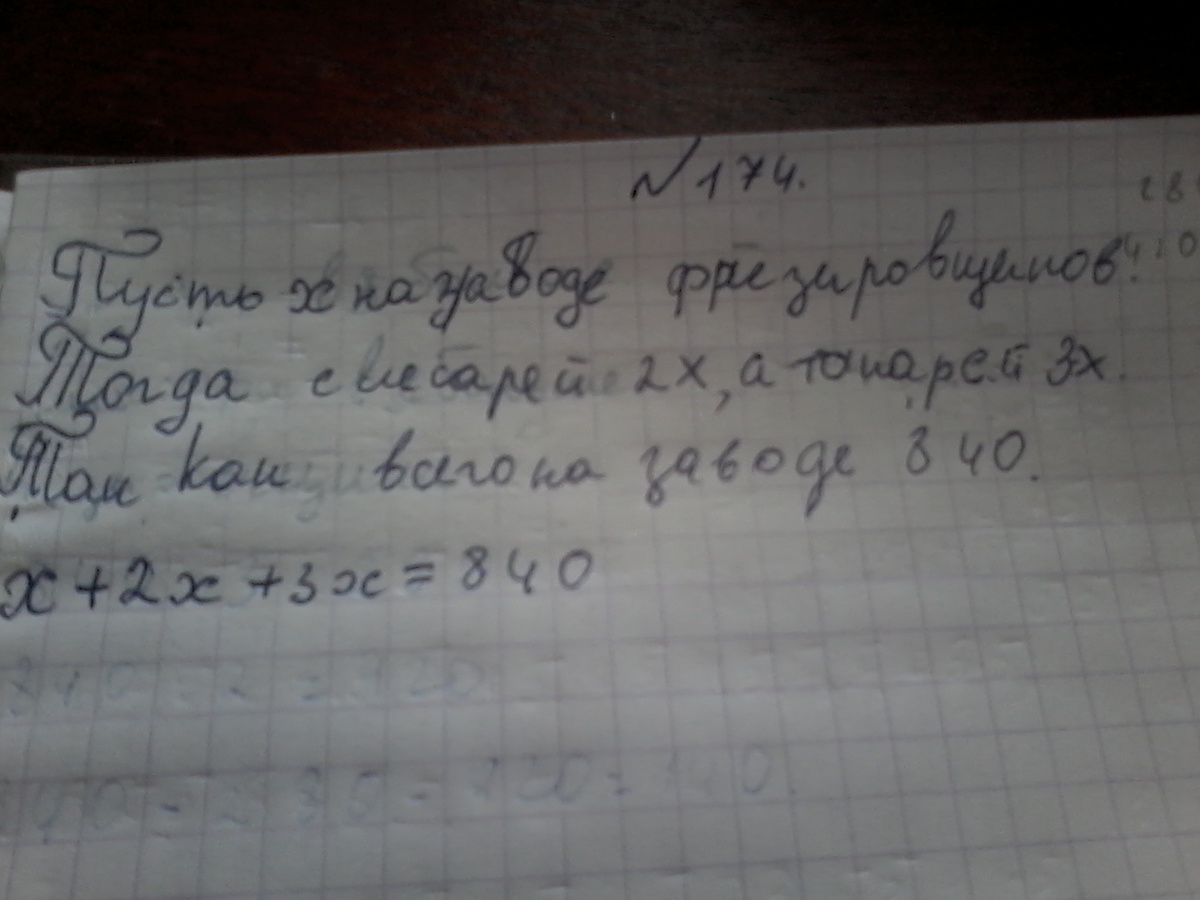 №174.
Пусть х на заводе фрезировщиков.
Тогда слесарей 2х, а токарей 3х.
Так как всего на заводе 840.
х + 2х + 3х = 840